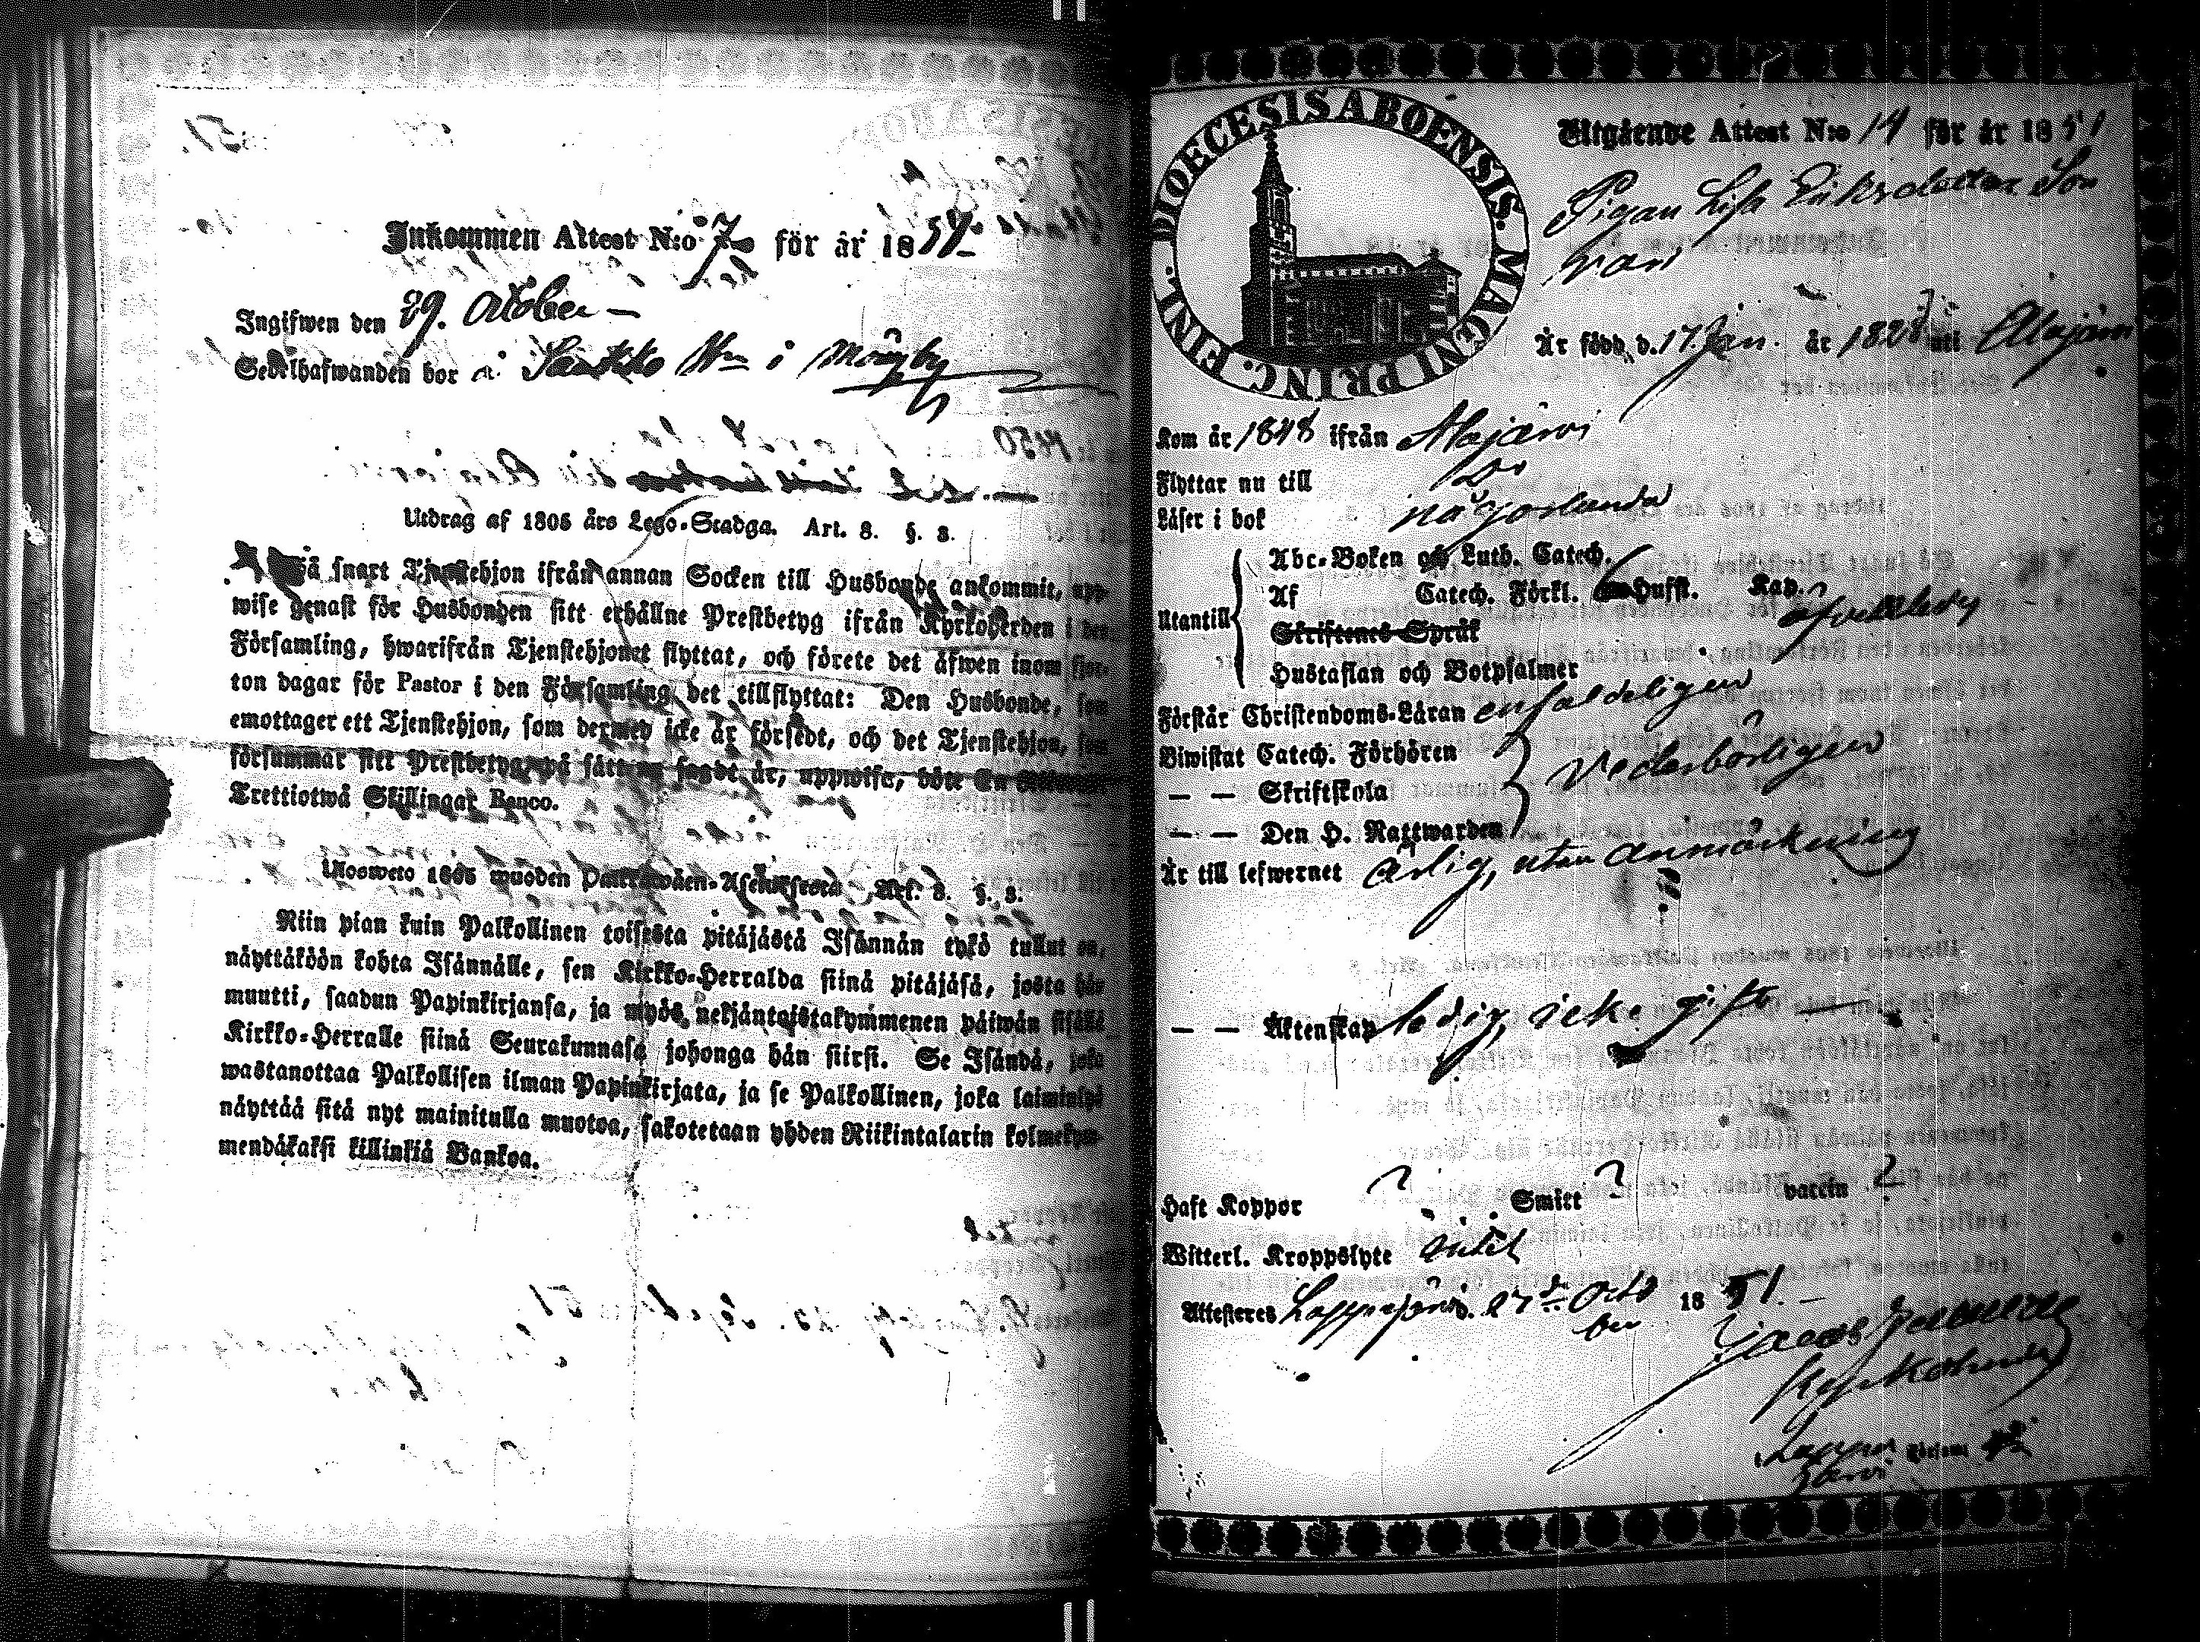 Inkommen Attest N:o 7 för år 1851
Ingifwen den 29. October
Sedelhafwanden bor i
Utdrag af 1805 års Lego-Stadga. Art. 8. §. 3.
Så snart Tjenstehjon ifrån annan Socken till Husbonde ankommit, upp-
wise genast för Husbonden sitt erhållne Prestbetyg ifrån Kyrkoherden i den
Församling, hwarifrån Tjenstehjonet flyttat, och förete det äfwen inom fjor-
ton dagar för Pastor i den Församling det tillflyttat: Den Husbonde, som
emottager ett Tjenstehjon, som dermed icke är försedt, och det Tjenstehjon, som
försummar sitt Prestbetyg på sätt sagdt är, uppwisa, böte En
Trettiotwå Skillingar Banco.
Ulosweto 1805 wuoden Palkkawäen-Asetuksesta Art. 8. §. 3.
Niin pian kuin Palkollinen toisesta pitäjästä Isännän tykö tullut on,
näyttäköön kohta Isännälle, sen Kirkko-Herralda siinä pitäjäsä, josta hän
muutti, saadun Papinkirjansa, ja myös neljäntoistakymmenen päiwän sisällä
Kirkko-Herralle siinä Seurakunnasa johonga hän siirsi. Se Isändä, joka
wastanottaa Palkollisen ilman Papinkirjata, ja se Palkollinen, joka laiminlyö
näyttää sitä nyt mainitulla muotoa, sakotetaan yhden Riikintalarin kolmekym-
mendäkaksi killinkiä Bankoa.
DIOECESIS ABOENSIS. MAGNI PRINC. FINL.
Utgående Attest N:o 14 för år 1851
Pigan Lisa Eriksdotter
Är född d. 17 Jan. år 1828 uti Alajärvi
Kom år 1848 ifrån Alajärvi
Flyttar nu till
Läser i bok någorlunda
Utantill
Abc-Boken och Luth. Catech.
Af Catech. Förkl. Hufst. Kap.
Skriftenes Språk
Hustaflan och Botpsalmer
Förstår Christendoms-Läran enfaldeligen
Biwistat Catech. Förhören
— — Skriftskola vederbörligen
— — Den H. Nattwarden
Är till lefwernet ärlig, utan anmärkning
— — Äktenskap ledig, icke gift —
Haft Koppor ? Smitt ? vaccin ?
Witterl. Kroppslyte intet
Attesteras Lappajärvi d. 27 Octo
ber 1851.
Kyrkoherde
Lappa
järvi